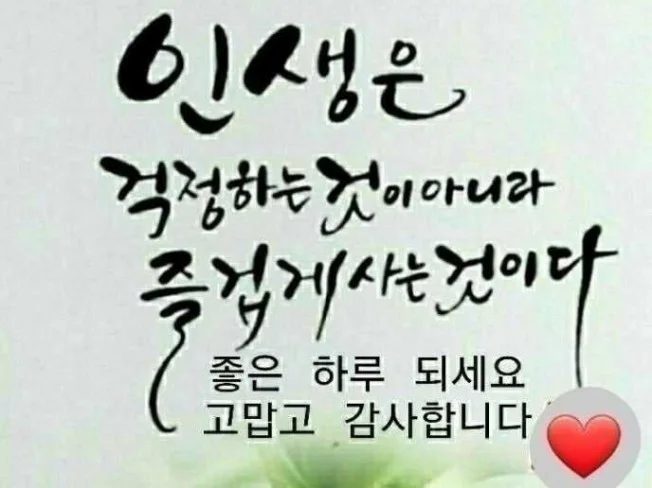 인생은
걱정하는 것이 아니라
즐겁게 사는 것이다
좋은 하루 되세요
고맙고 감사합니다